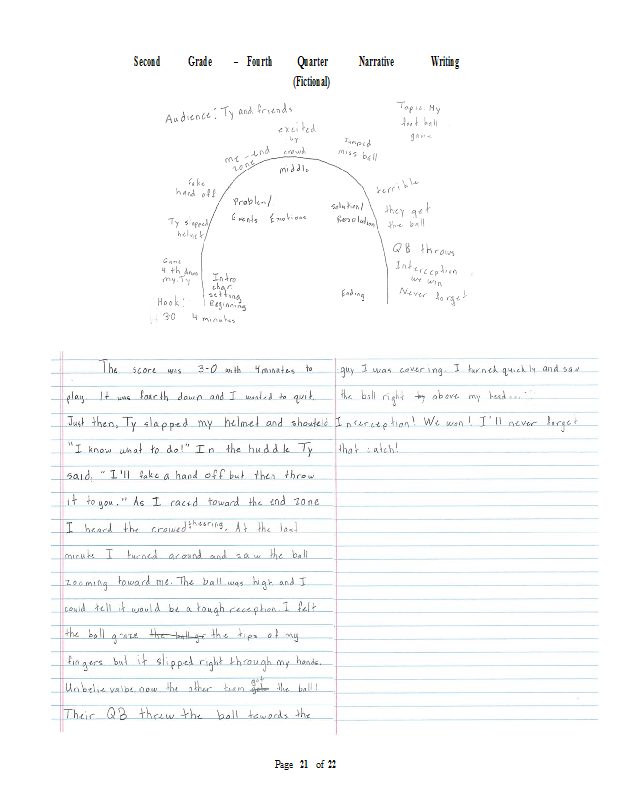 Second Grade – Fourth Quarter Narrative Writing
(Fictional)
Audience: Ty and friends
Topic: My
foot ball
game
excited
by
crowd
Jumped
miss ball
me - end
zone
middle
fake
hand off
terrible
Problem/
Events Emotions
Solution/
Resolution
they get
the ball
Ty slapped
helmet
QB throws
Interception
we win
Never forget
Game
4th down
my, Ty
Intro
char.
setting
Beginning
Ending
Hook:
30 4 minutes
The score was 3-0 with 4 minutes to
play. It was fourth down and I wanted to quit.
Just then, Ty slapped my helmet and shouted
"I know what to do!" In the huddle Ty
said, "I'll fake a hand off but then throw
it to you." As I raced toward the end zone
I heard the crowed cheering. At the last
minute I turned around and saw the ball
zooming toward me. The ball was high and I
could tell it would be a tough reception. I felt
the ball graze the ball gr the tips of my
fingers but it slipped right through my hands.
Unbelievalbe now the other team got the ball!
Their QB threw the ball towards the
guy I was covering. I turned quickly and saw
the ball right above my head...
Interception! We won! I'll never forget
that catch!
Page 21 of 22